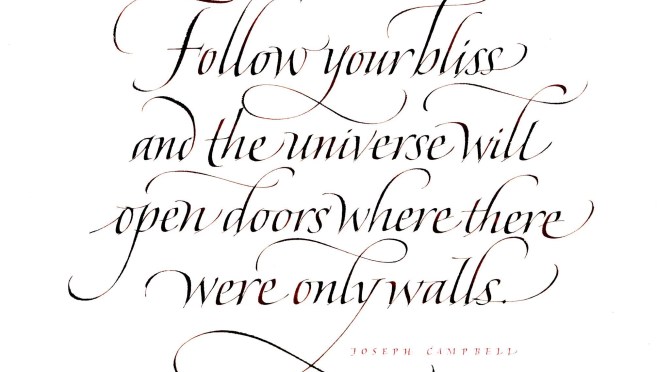 Follow your bliss
and the universe will
open doors where there
were only walls.
JOSEPH CAMPBELL